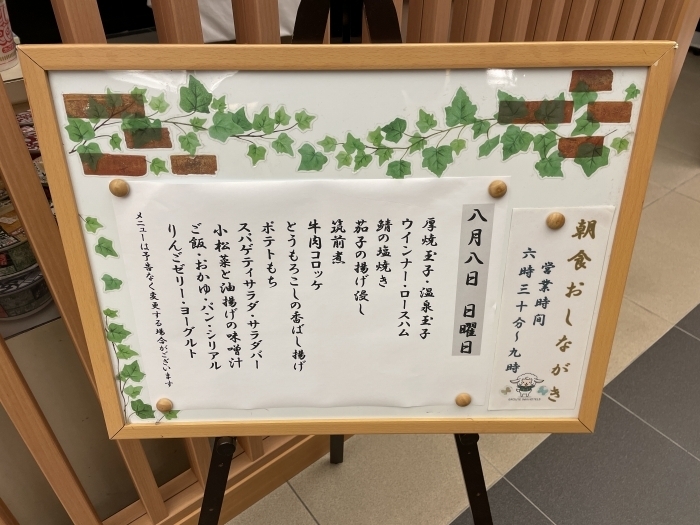 朝食おしながき
営業時間
六時三十分～九時
八月八日　日曜日
厚焼玉子・温泉玉子
ウインナー・ロースハム
鯖の塩焼き
茄子の揚げ浸し
筑前煮
牛肉コロッケ
とうもろこしの香ばし揚げ
ポテトもち
スパゲティサラダ・サラダバー
小松菜と油揚げの味噌汁
ご飯・おかゆ・パン・シリアル
りんごゼリー・ヨーグルト
メニューは予告なく変更する場合がございます